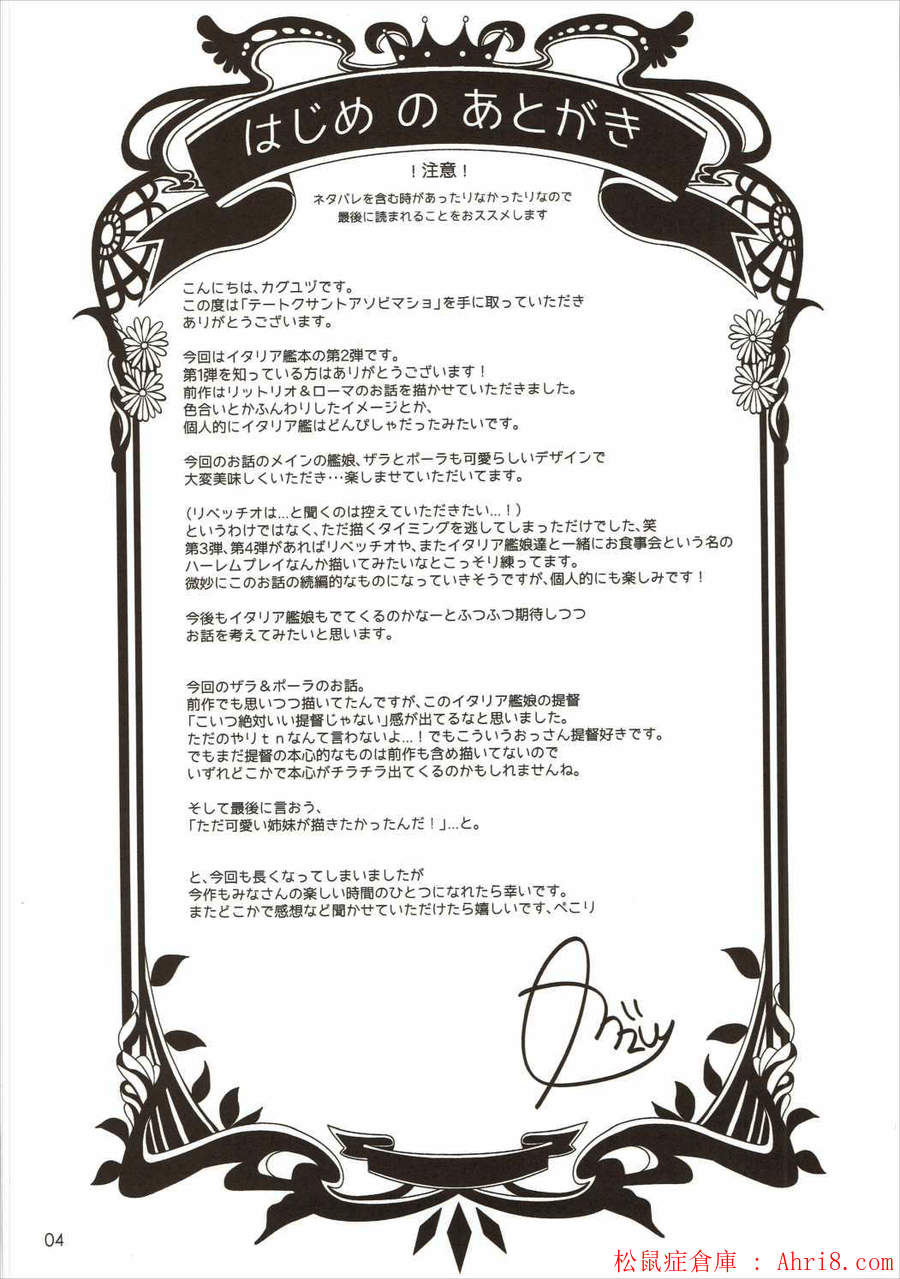 はじめ の あとがき
！注意！
ネタバレを含む時があったりなかったりなので
最後に読まれることをおススメします
こんにちは、カグユヅです。
この度は「テートクサントアソビマショ」を手に取っていただき
ありがとうございます。
今回はイタリア艦本の第2弾です。
第1弾を知っている方はありがとうございます！
前作はリットリオ＆ローマのお話を描かせていただきました。
色合いとかふんわりしたイメージとか、
個人的にイタリア艦はどんぴしゃだったみたいです。
今回のお話のメインの艦娘、ザラとポーラも可愛らしいデザインで
大変美味しくいただき…楽しませていただいてます。
（リベッチオは…と聞くのは控えていただきたい…！）
というわけではなく、ただ描くタイミングを逃してしまっただけでした、笑
第3弾、第4弾があればリベッチオや、またイタリア艦娘達と一緒にお食事会という名の
ハーレムプレイなんか描いてみたいなとこっそり練ってます。
微妙にこのお話の続編的なものになっていきそうですが、個人的にも楽しみです！
今後もイタリア艦娘もでてくるのかなーとふつふつ期待しつつ
お話を考えてみたいと思います。
今回のザラ＆ポーラのお話。
前作でも思いつつ描いてたんですが、このイタリア艦娘の提督
「こいつ絶対いい提督じゃない」感が出てるなと思いました。
ただのやりｔｎなんて言わないよ…！でもこういうおっさん提督好きです。
でもまだ提督の本心的なものは前作も含め描いてないので
いずれどこかで本心がチラチラ出てくるのかもしれませんね。
そして最後に言おう、
「ただ可愛い姉妹が描きたかったんだ！」…と。
と、今回も長くなってしまいましたが
今作もみなさんの楽しい時間のひとつになれたら幸いです。
またどこかで感想など聞かせていただけたら嬉しいです、ぺこり
04
松鼠症倉庫 : Ahri8.com